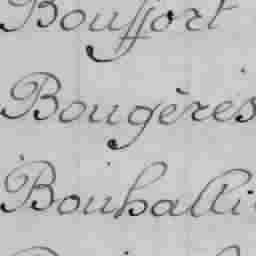 Bouffort
Bougères
Bouhalli